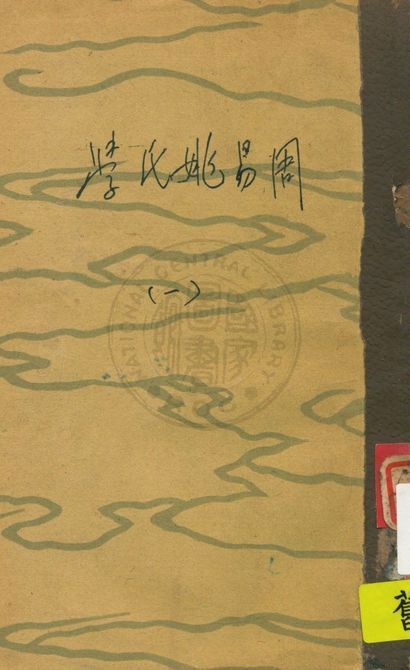 學氏姚易周
(一)
NATIONAL CENTRAL LIBRARY
國家圖書館
舊